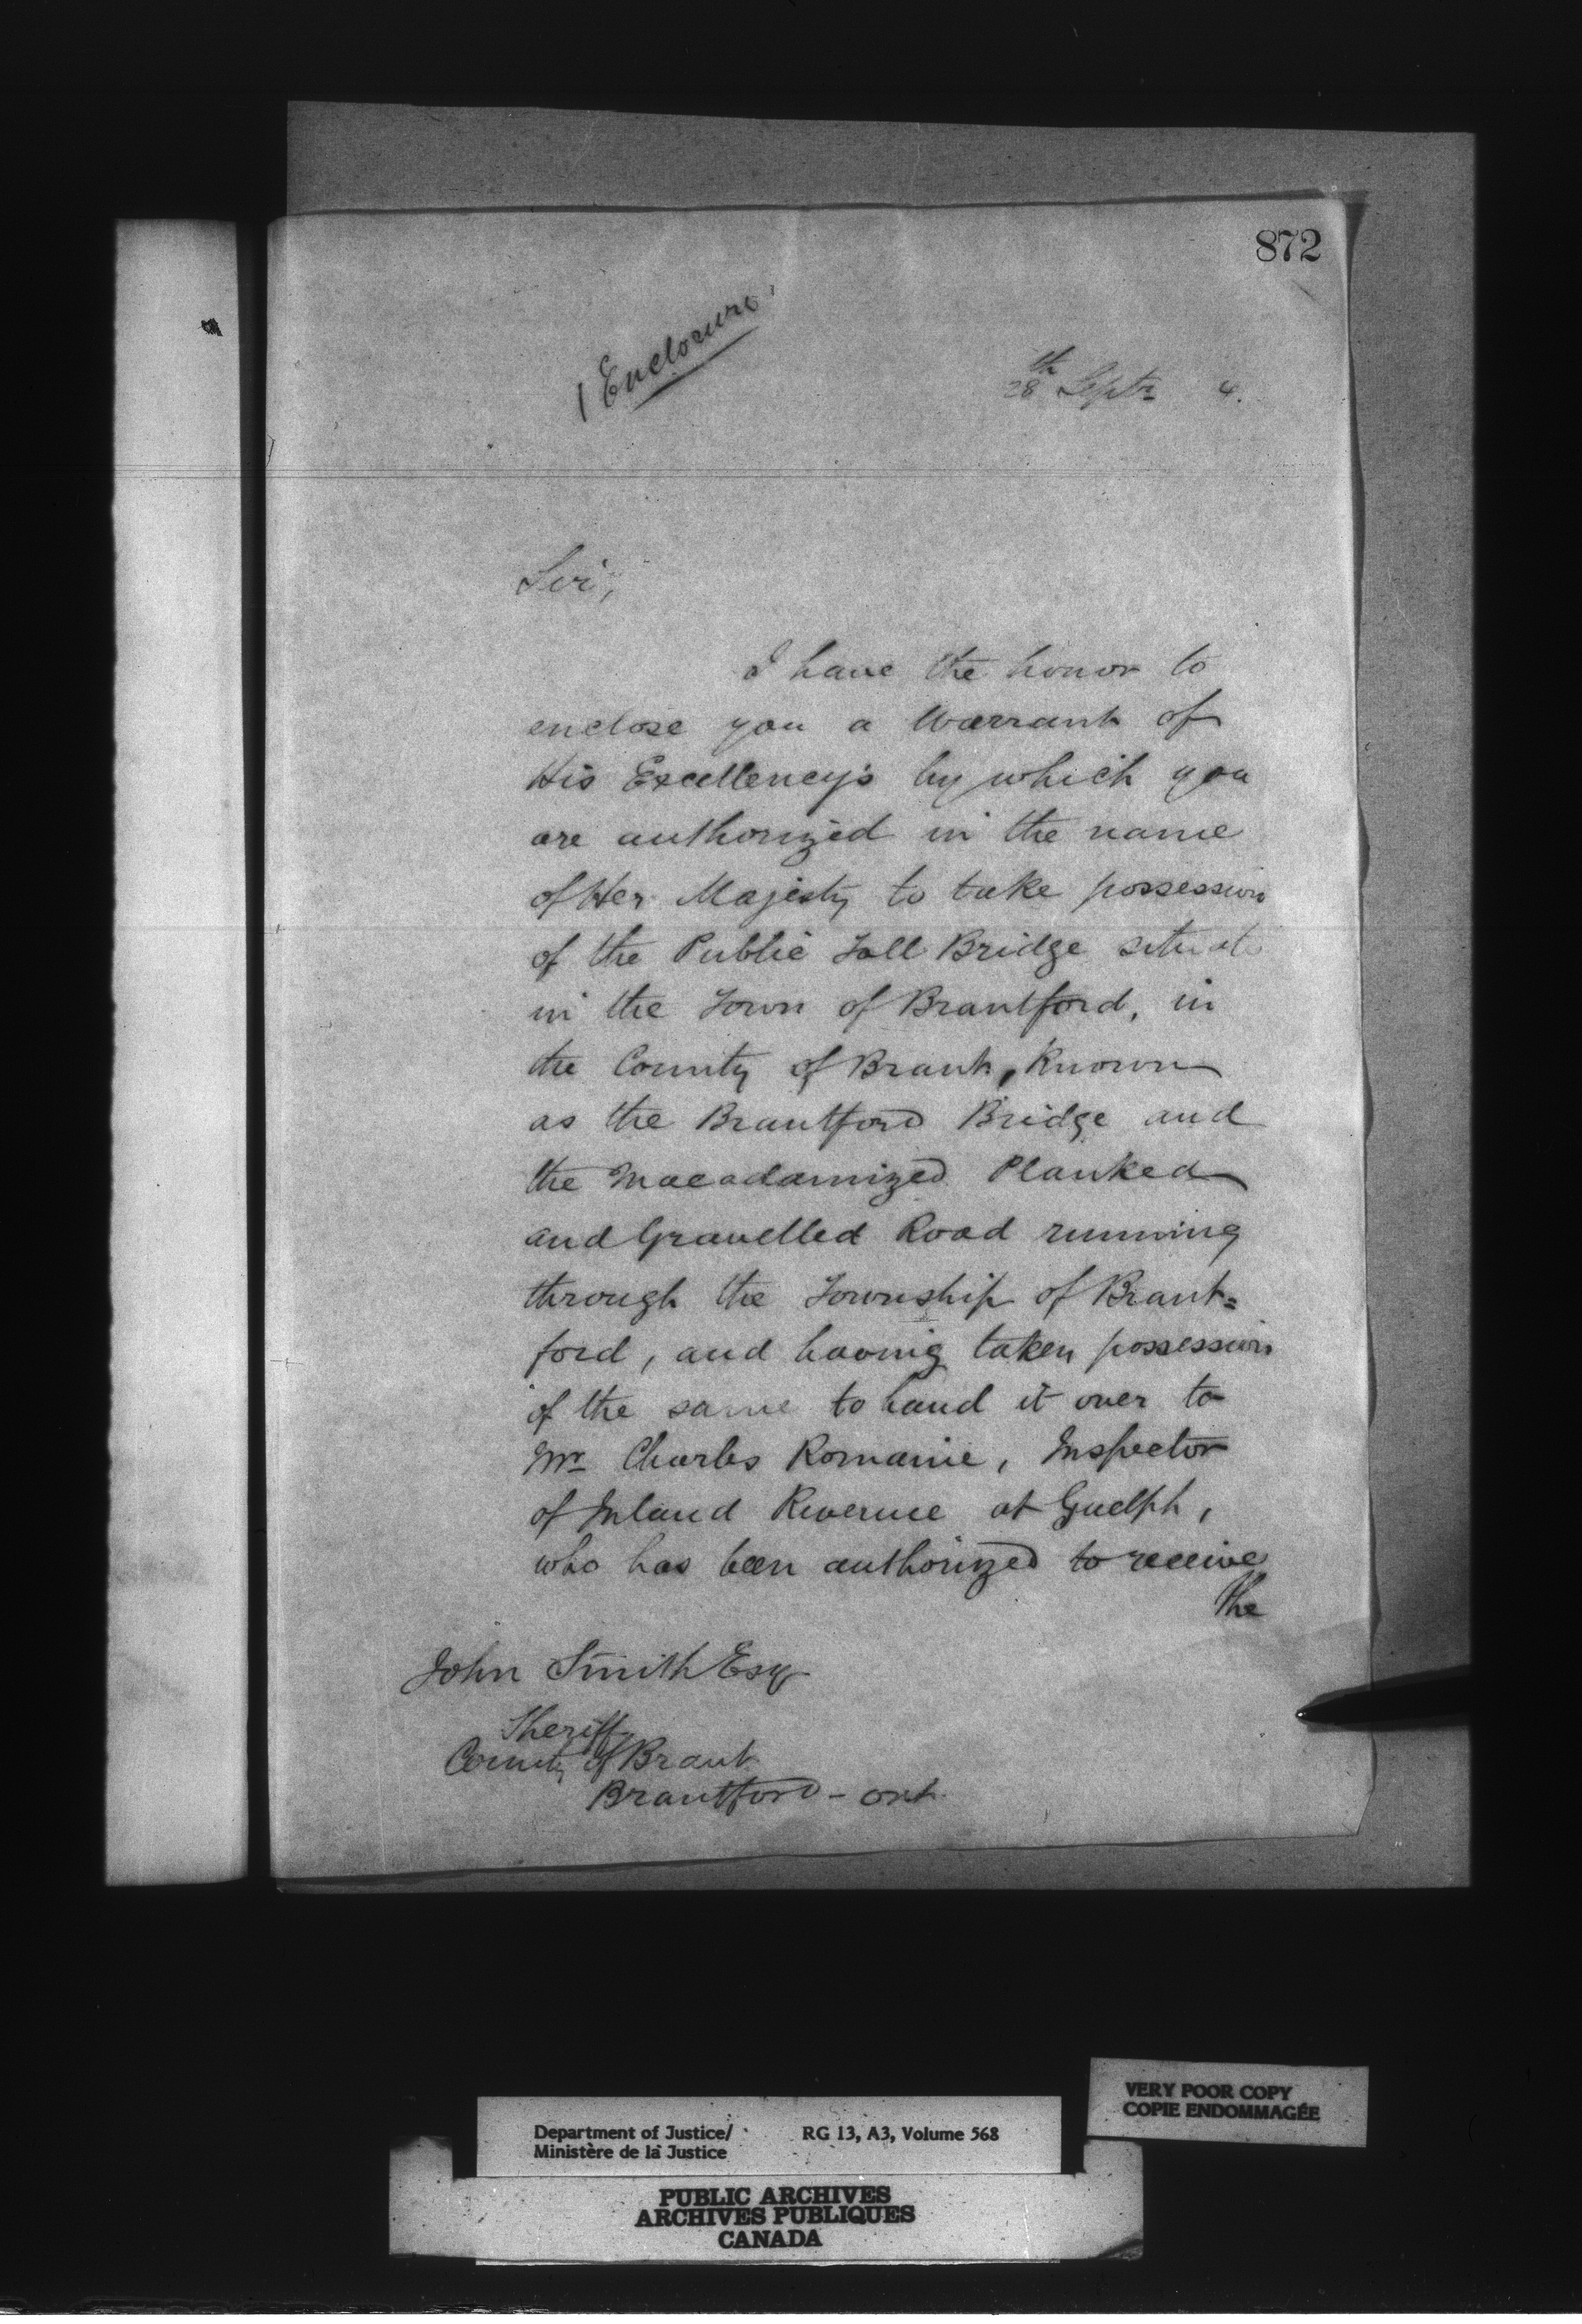 872
1 Enclosure
28th Septr 4.
Sir,
I have the honor to
enclose you a Warrant of
His Excellency's by which you
are authorized in the name
of Her Majesty to take possession
of the Public Toll Bridge situate
in the Town of Brantford, in
the County of Brant, Known
as the Brantford Bridge and
the Macadamized Planked
and Gravelled Road running
through the Township of Brant=
ford, and having taken possession
of the same to hand it over to
Mr Charles Romaine, Inspector
of Inland Revenue at Guelph,
who has been authorized to receive
the
John Smith Esq
Sheriff
County of Brant
Brantford - Ont.
VERY POOR COPY
COPIE ENDOMMAGÉE
Department of Justice/ RG 13, A3, Volume 568
Ministère de la Justice
PUBLIC ARCHIVES
ARCHIVES PUBLIQUES
CANADA